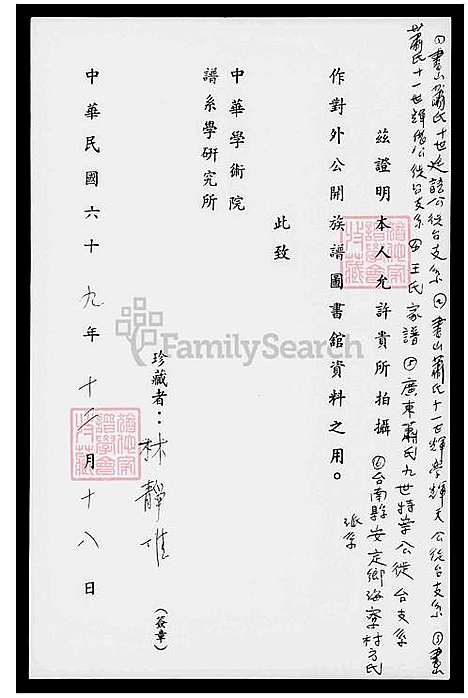 (1)書山蕭氏十世廷諒公徙台支系 (2)書山蕭氏十一世輝学輝天公徙台支系 (3)書山
蕭氏十一世輝僭公徙台支系 (4)王氏家譜 (5)廣東蕭氏九世特宰公徙台支系
茲證明本人允許貴所拍攝 (6)台南縣安定鄉海寮村方氏
派系
作對外公開族譜圖書館資料之用。
此致
中華學術院
譜系學研究所
珍藏者：林靜
(簽章)
中華民國六十九年十二月十八日
FamilySearch